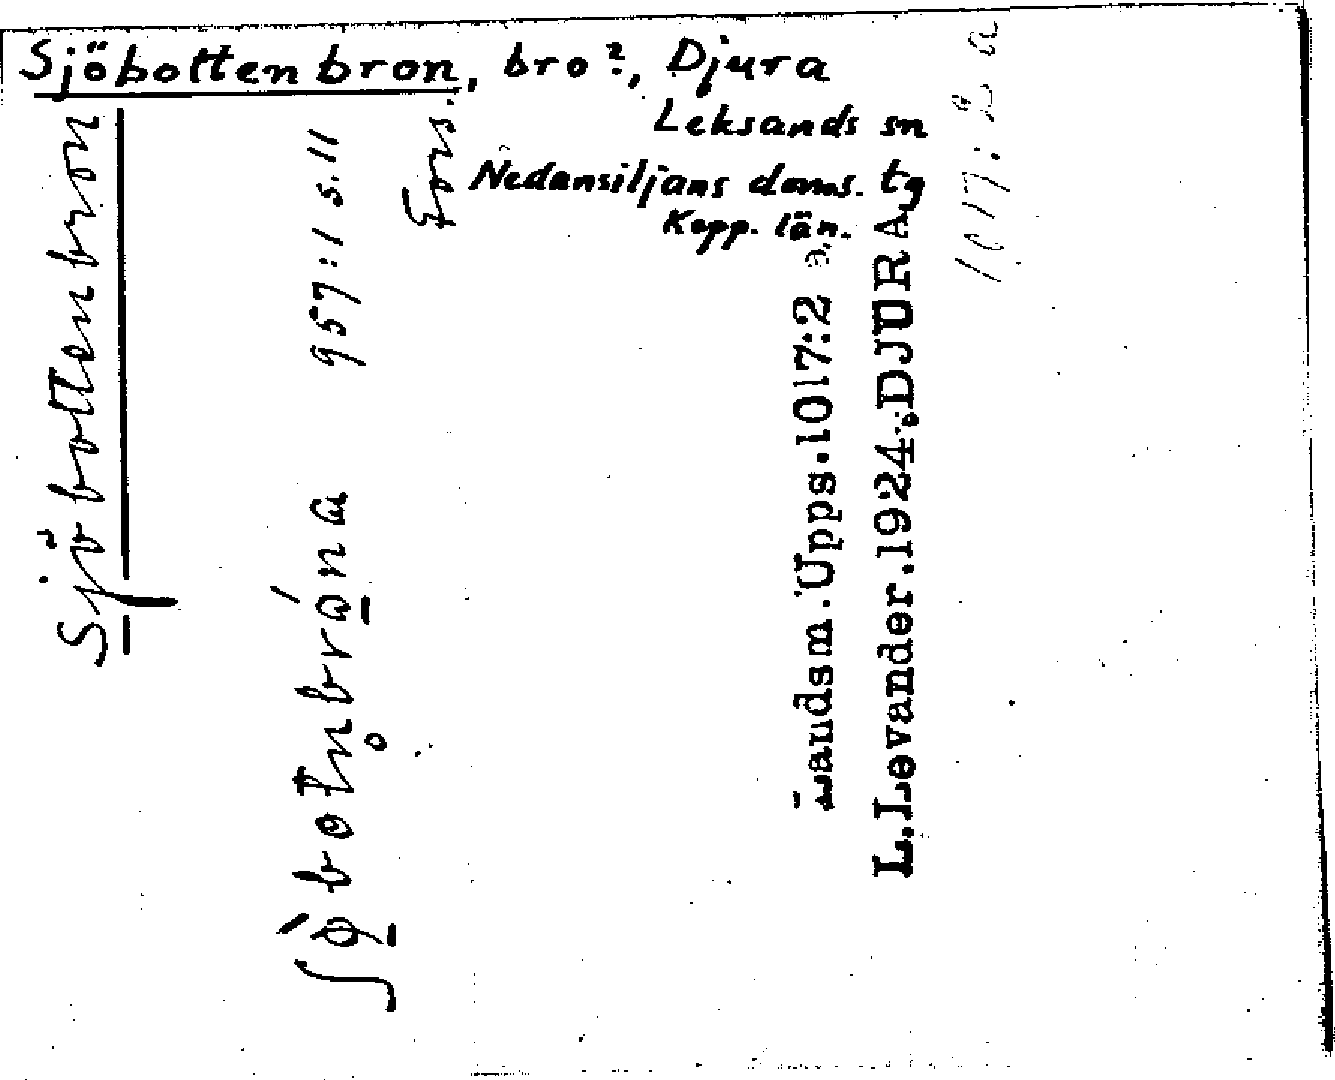 Sjöbottenbron, bro?, Djura
Leksands sn
Nedansiljans doms. tg
Kopp. län.
Sjöbottenbron
957:1 s.11
ʃö̀botn̥brǻna
Landsm. Upps. 1017:2 a.
L. Levander. 1924. DJURA
1017:2 a